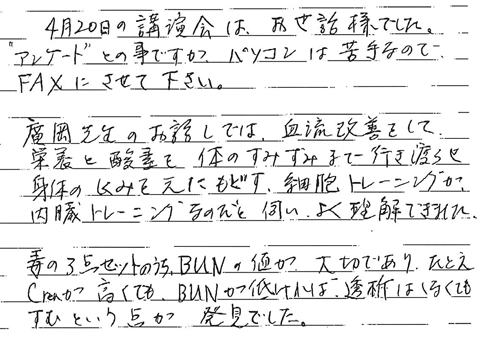 4月20日の講演会は、お世話様でした。
"アンケート"との事ですが、パソコンは苦手なので、
FAXにさせて下さい。
廣岡先生のお話しでは、血流改善をして
栄養と酸素を体のすみずみまで行き渡らせ
身体のしくみを元にもどす、細胞トレーニングが、
内臓トレーニングなのだと伺い、よく理解できました。
毒の3点セットのうち、BUNの値が大切であり、たとえ
Creaが高くても、BUNが低ければ、透析はしなくても
すむという点が発見でした。